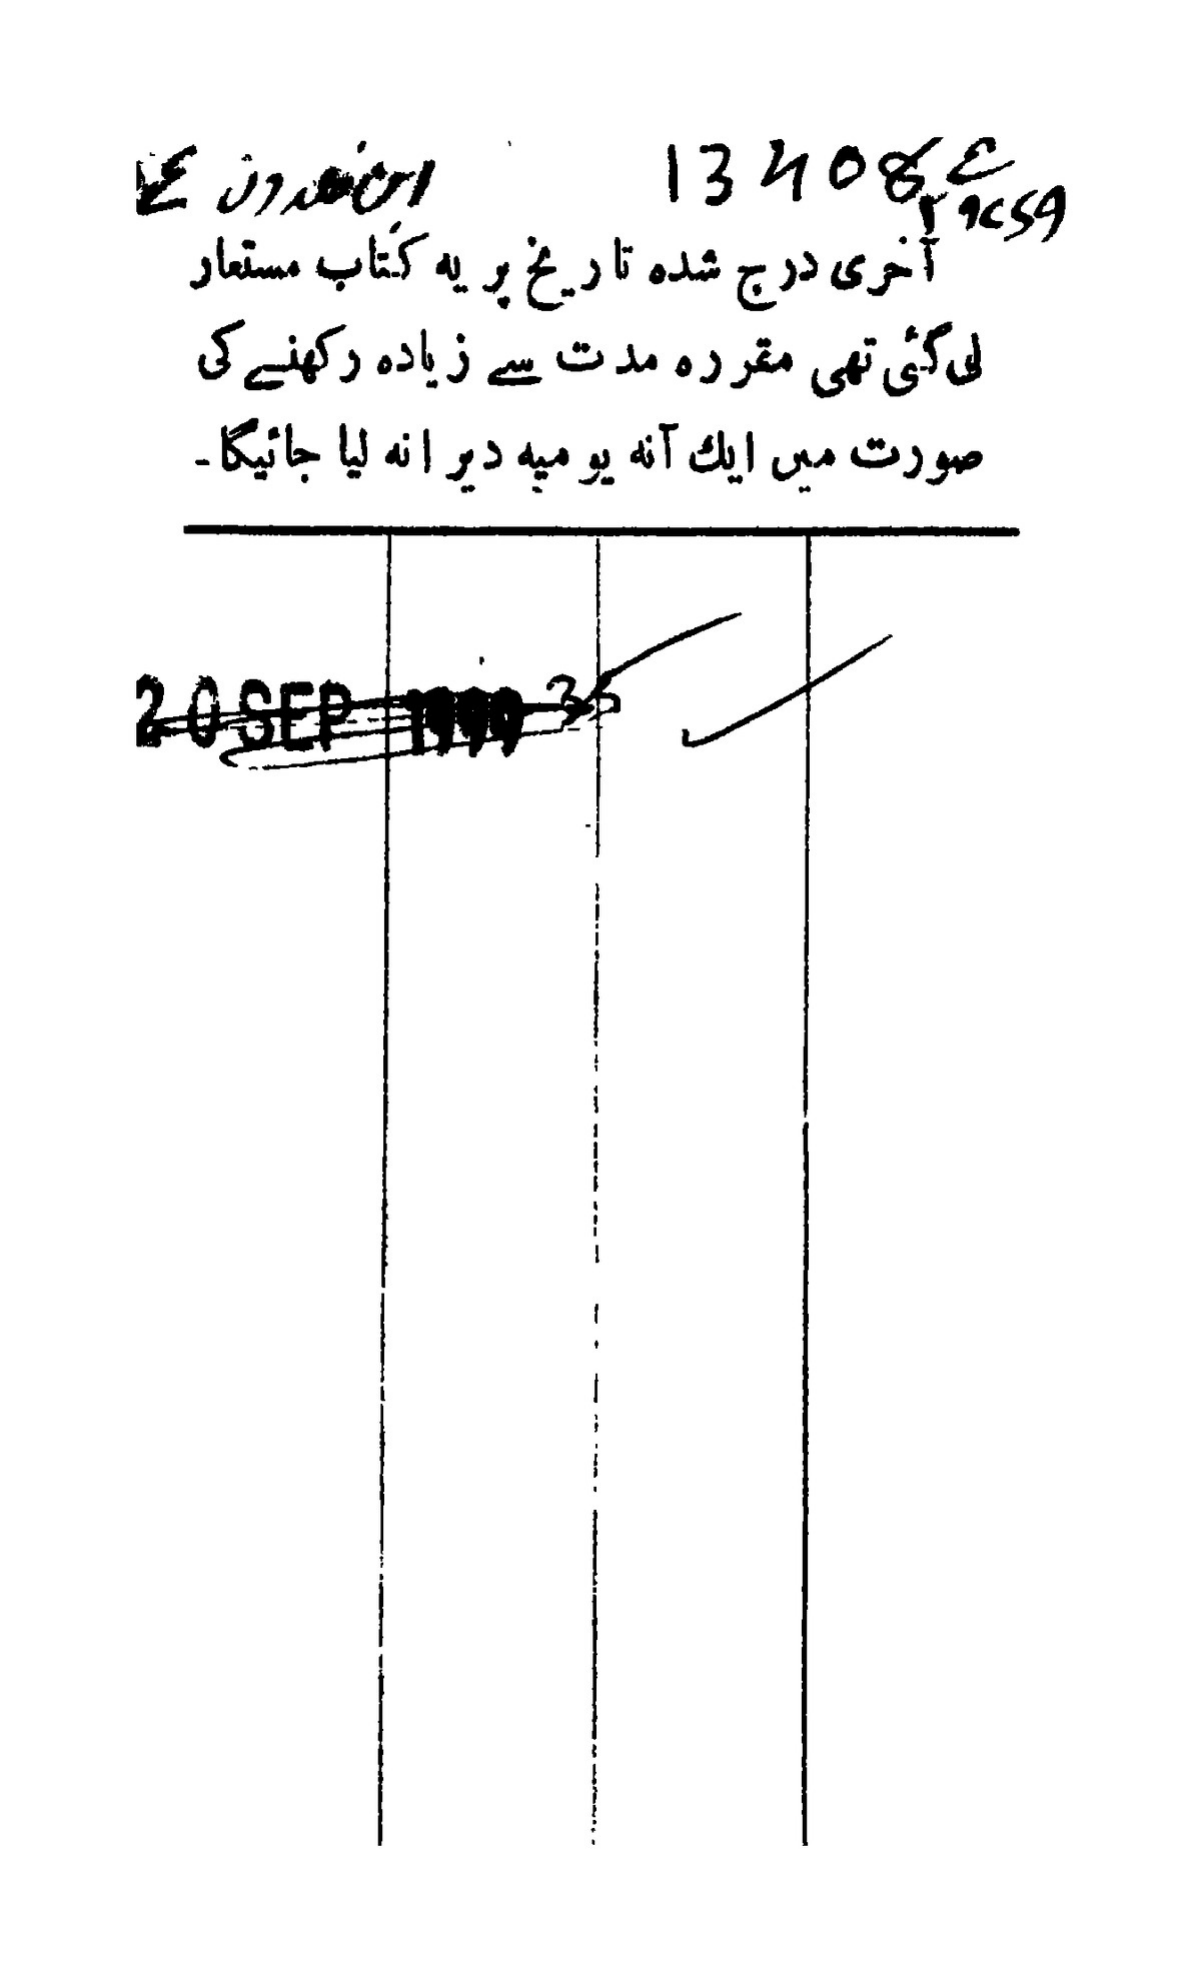 13408 ابن خلدون
آخری درج شدہ تاریخ پر یہ کتاب مستعار
لی گئی تھی مقررہ مدت سے زیادہ رکھنے کی
صورت میں ایك آنہ یومیہ دیرانہ لیا جائیگا۔
20 SEP 1999